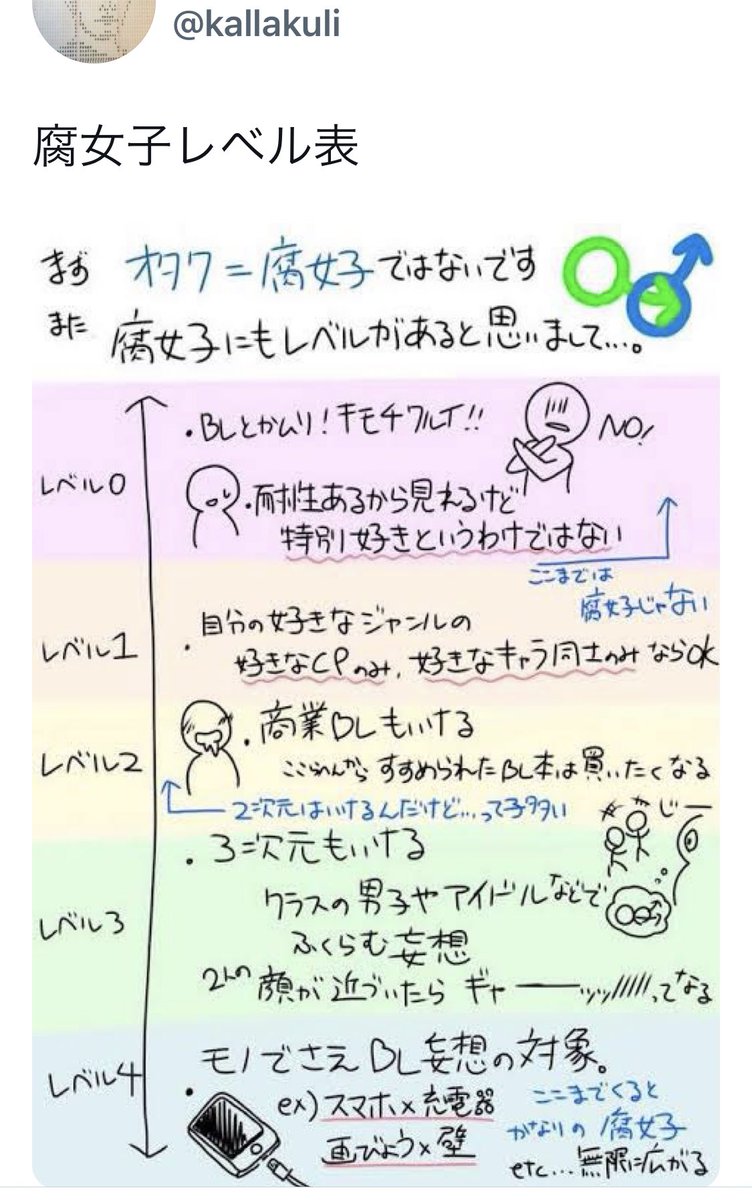 @kallakuli
腐女子レベル表
まず オタク=腐女子ではないです
また 腐女子にもレベルがあると思いまして…。
レベル0
・BLとかムリ!キモチワルイ!!
NO!
・耐性あるから見えるけど
特別好きというわけではない
ここまでは
腐女子じゃない
レベル1
・自分の好きなジャンルの
好きなCPのみ、好きなキャラ同士のみならOK
レベル2
・商業BLもいける
ここらへんから すすめられたBL本は買いたくなる
2次元はいけるんだけど…って子多い
レベル3
・3次元もいける
じー
クラスの男子やアイドルなどで
ふくらむ妄想
2人の顔が近づいたら ギャーーーッッ/////ってなる
レベル4
・モノでさえBL妄想の対象。
ex)スマホ×充電器
画びょう×壁
ここまでくると
かなりの腐女子
etc…無限に広がる